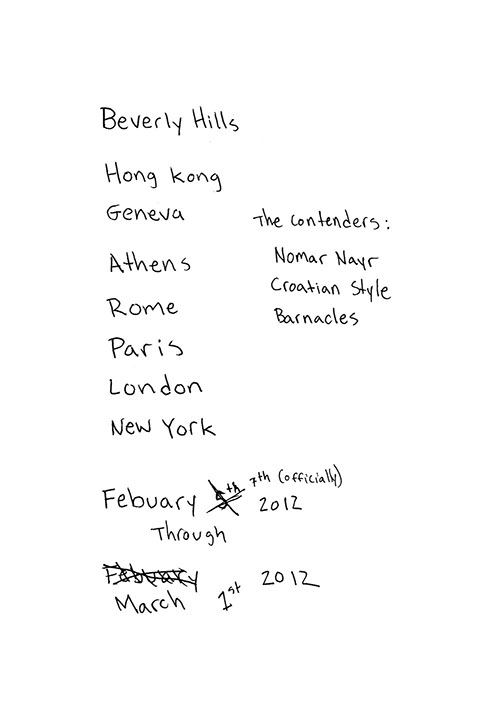 Beverly Hills
Hong Kong
Geneva
Athens
Rome
Paris
London
New York
The Contenders:
Nomar Nayr
Croatian Style
Barnacles
Febuary 5th 7th (officially) 2012
Through
Febuary
March 1st 2012